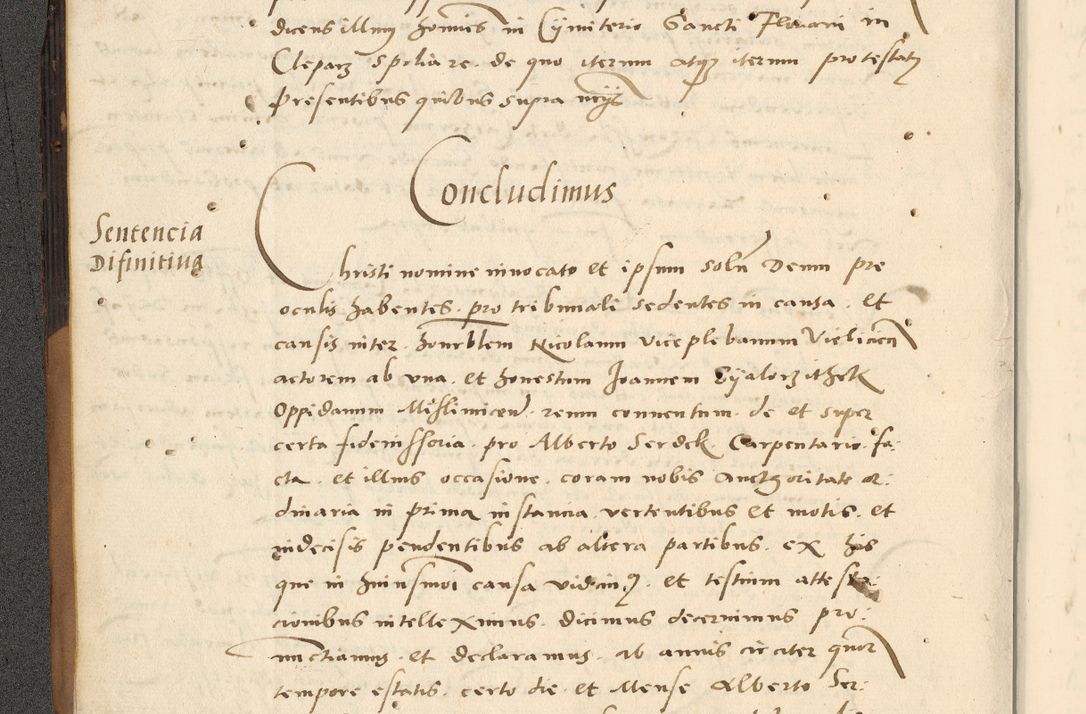 dicens illum homines in Cymiterio Sancti Floriani in
Cleparz spoliare. de quo iterum atq iterum protestatz
Presentibus quibus supra
Concludimus
Sentencia
Difinitiva
Christi nomine invocato et ipsum solū Deum pre
oculis habentes. pro tribunali sedentes in causa. et
causis inter. honrblem Nicolaum viceplebanum Vielicien
actorem ab una. et honestum Joannem
Oppidanum Mislimicen. reum conventum. de et super
certa fideiussoria. pro Alberto Serdek Carpentario. fa:
cta. et illius occasione. coram nobis Aucthoritate or:
dinaria in prima instancia vertentibus et motis. et
indecisis pendentibus ab altera partibus. ex his
que in huiusmoi causa vidimꝰ. et testium attesta:
cionibus intelleximus. dicimus decernimus pro:
nunctiamus. et declaramus. ab annis circiter quor
tempore estatis. certo die et Mense Alberto Ser: